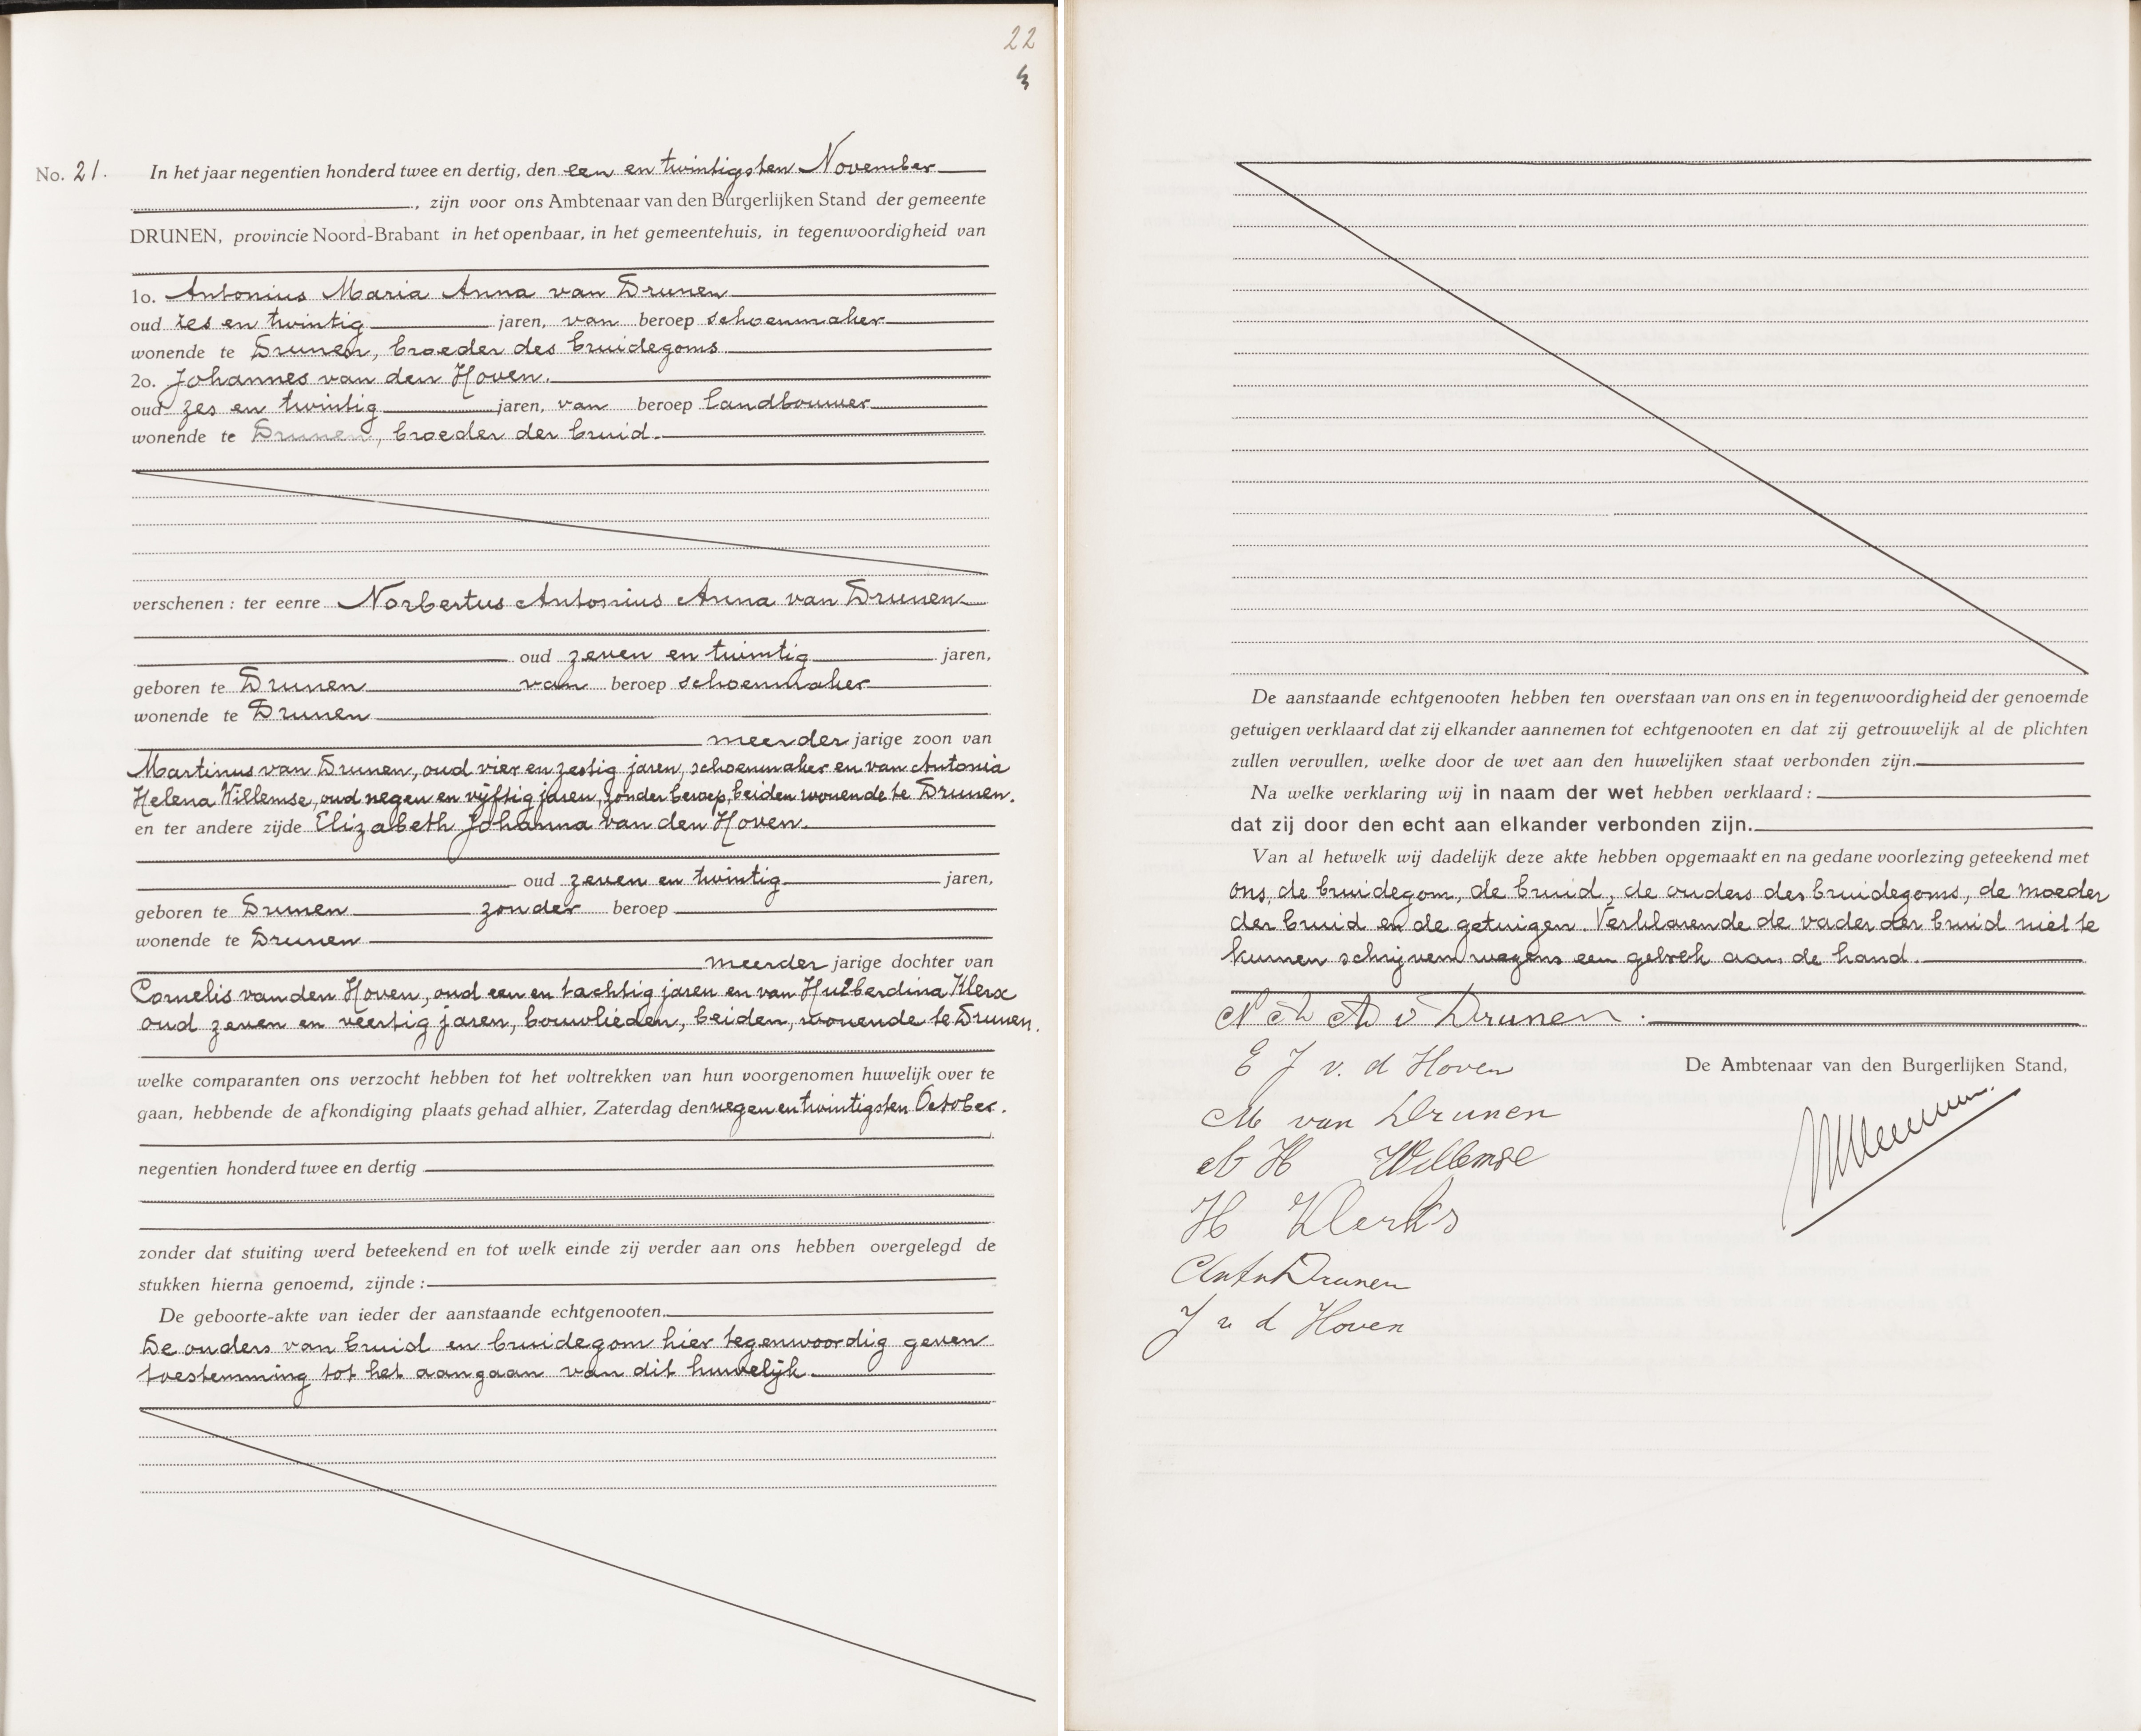 22
No. 21. In het jaar negentien honderd twee en dertig, den een en twintigsten November
, zijn voor ons Ambtenaar van den Burgerlijken Stand der gemeente
DRUNEN, provincie Noord-Brabant in het openbaar, in het gemeentehuis, in tegenwoordigheid van
1o. Antonius Maria Anna van Drunen
oud zes en twintig jaren, van beroep schoenmaker
wonende te Drunen, broeder des bruidegoms
2o. Johannes van den Hoven.
oud zes en twintig jaren, van beroep landbouwer
wonende te Drunen, broeder der bruid.
verschenen: ter eenre Norbertus Antonius Anna van Drunen
oud zeven en twintig jaren,
geboren te Drunen van beroep schoenmaker
wonende te Drunen
meerder jarige zoon van
Martinus van Drunen, oud vier en zestig jaren, schoenmaker en van Antonia
Helena Willemse, oud negen en vijftig jaren, zonder beroep, beiden wonende te Drunen.
en ter andere zijde Elizabeth Johanna van den Hoven.
oud zeven en twintig jaren,
geboren te Drunen zonder beroep
wonende te Drunen
meerder jarige dochter van
Cornelis van den Hoven, oud een en tachtig jaren en van Huiberdina Klerx
oud zeven en veertig jaren, bouwlieden, beiden, wonende te Drunen.
welke comparanten ons verzocht hebben tot het voltrekken van hun voorgenomen huwelijk over te
gaan, hebbende de afkondiging plaats gehad alhier, Zaterdag den negen en twintigsten October.
negentien honderd twee en dertig
zonder dat stuiting werd beteekend en tot welk einde zij verder aan ons hebben overgelegd de
stukken hierna genoemd, zijnde:
De geboorte-akte van ieder der aanstaande echtgenooten.
De ouders van bruid en bruidegom hier tegenwoordig geven
toestemming tot het aangaan van dit huwelijk.
De aanstaande echtgenooten hebben ten overstaan van ons en in tegenwoordigheid der genoemde
getuigen verklaard dat zij elkander aannemen tot echtgenooten en dat zij getrouwelijk al de plichten
zullen vervullen, welke door de wet aan den huwelijken staat verbonden zijn.
Na welke verklaring wij in naam der wet hebben verklaard:
dat zij door den echt aan elkander verbonden zijn.
Van al hetwelk wij dadelijk deze akte hebben opgemaakt en na gedane voorlezing geteekend met
ons, de bruidegom, de bruid, de ouders des bruidegoms, de moeder
der bruid en de getuigen. Verklarende de vader der bruid niet te
kunnen schrijven wegens een gebrek aan de hand.
N A A v Drunen.
E J v. d Hoven
De Ambtenaar van den Burgerlijken Stand,
M van Drunen
A H Willemse
H Klerks
Ant v Drunen
J v d Hoven